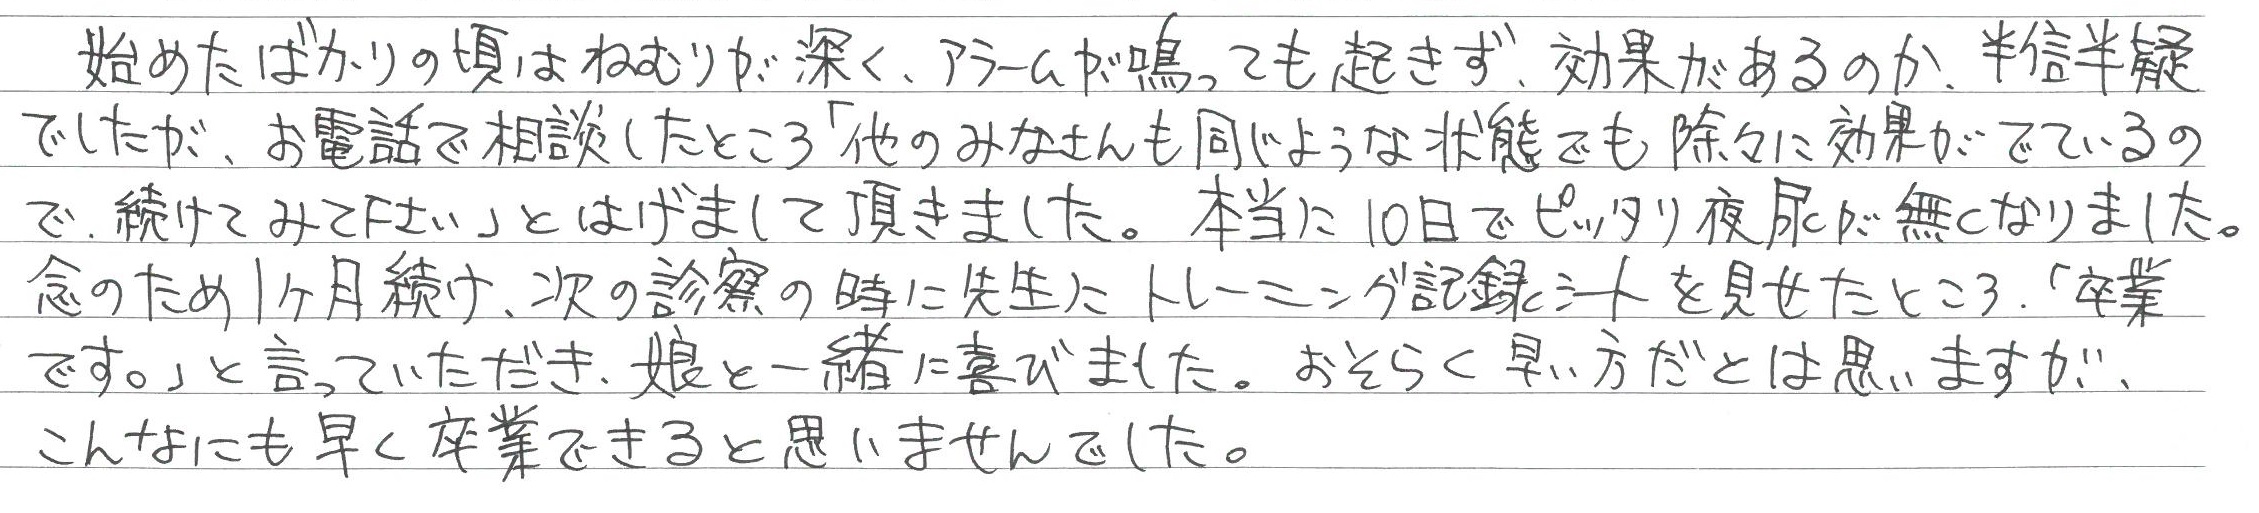 始めたばかりの頃はねむりが深く、アラームが鳴っても起きず、効果があるのか、半信半疑
でしたが、お電話で相談したところ「他のみなさんも同じような状態でも除々に効果がでているの
で、続けてみて下さい」とはげまして頂きました。本当に10日でピッタリ夜尿が無くなりました。
念のため1ヶ月続け、次の診察の時に先生にトレーニング記録シートを見せたところ、「卒業
です。」と言っていただき、娘と一緒に喜びました。おそらく早い方だとは思いますが、
こんなにも早く卒業できると思いませんでした。